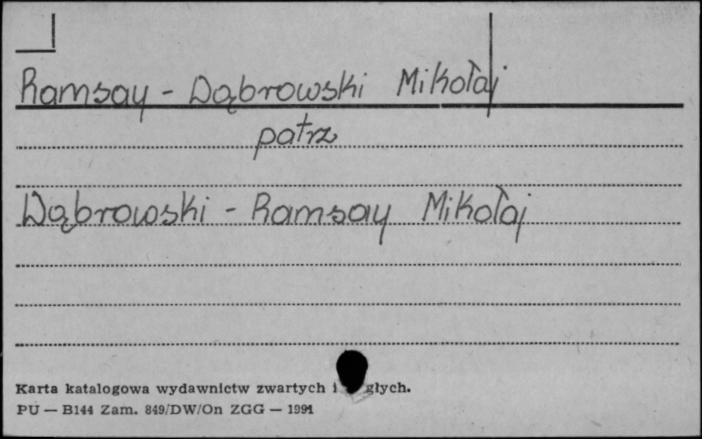 Ramsay - Dąbrowski Mikołaj
patrz
Dąbrowski - Ramsay Mikołaj
Karta katalogowa wydawnictw zwartych i głych.
PU — B144 Zam. 849/DW/On ZGG — 1991